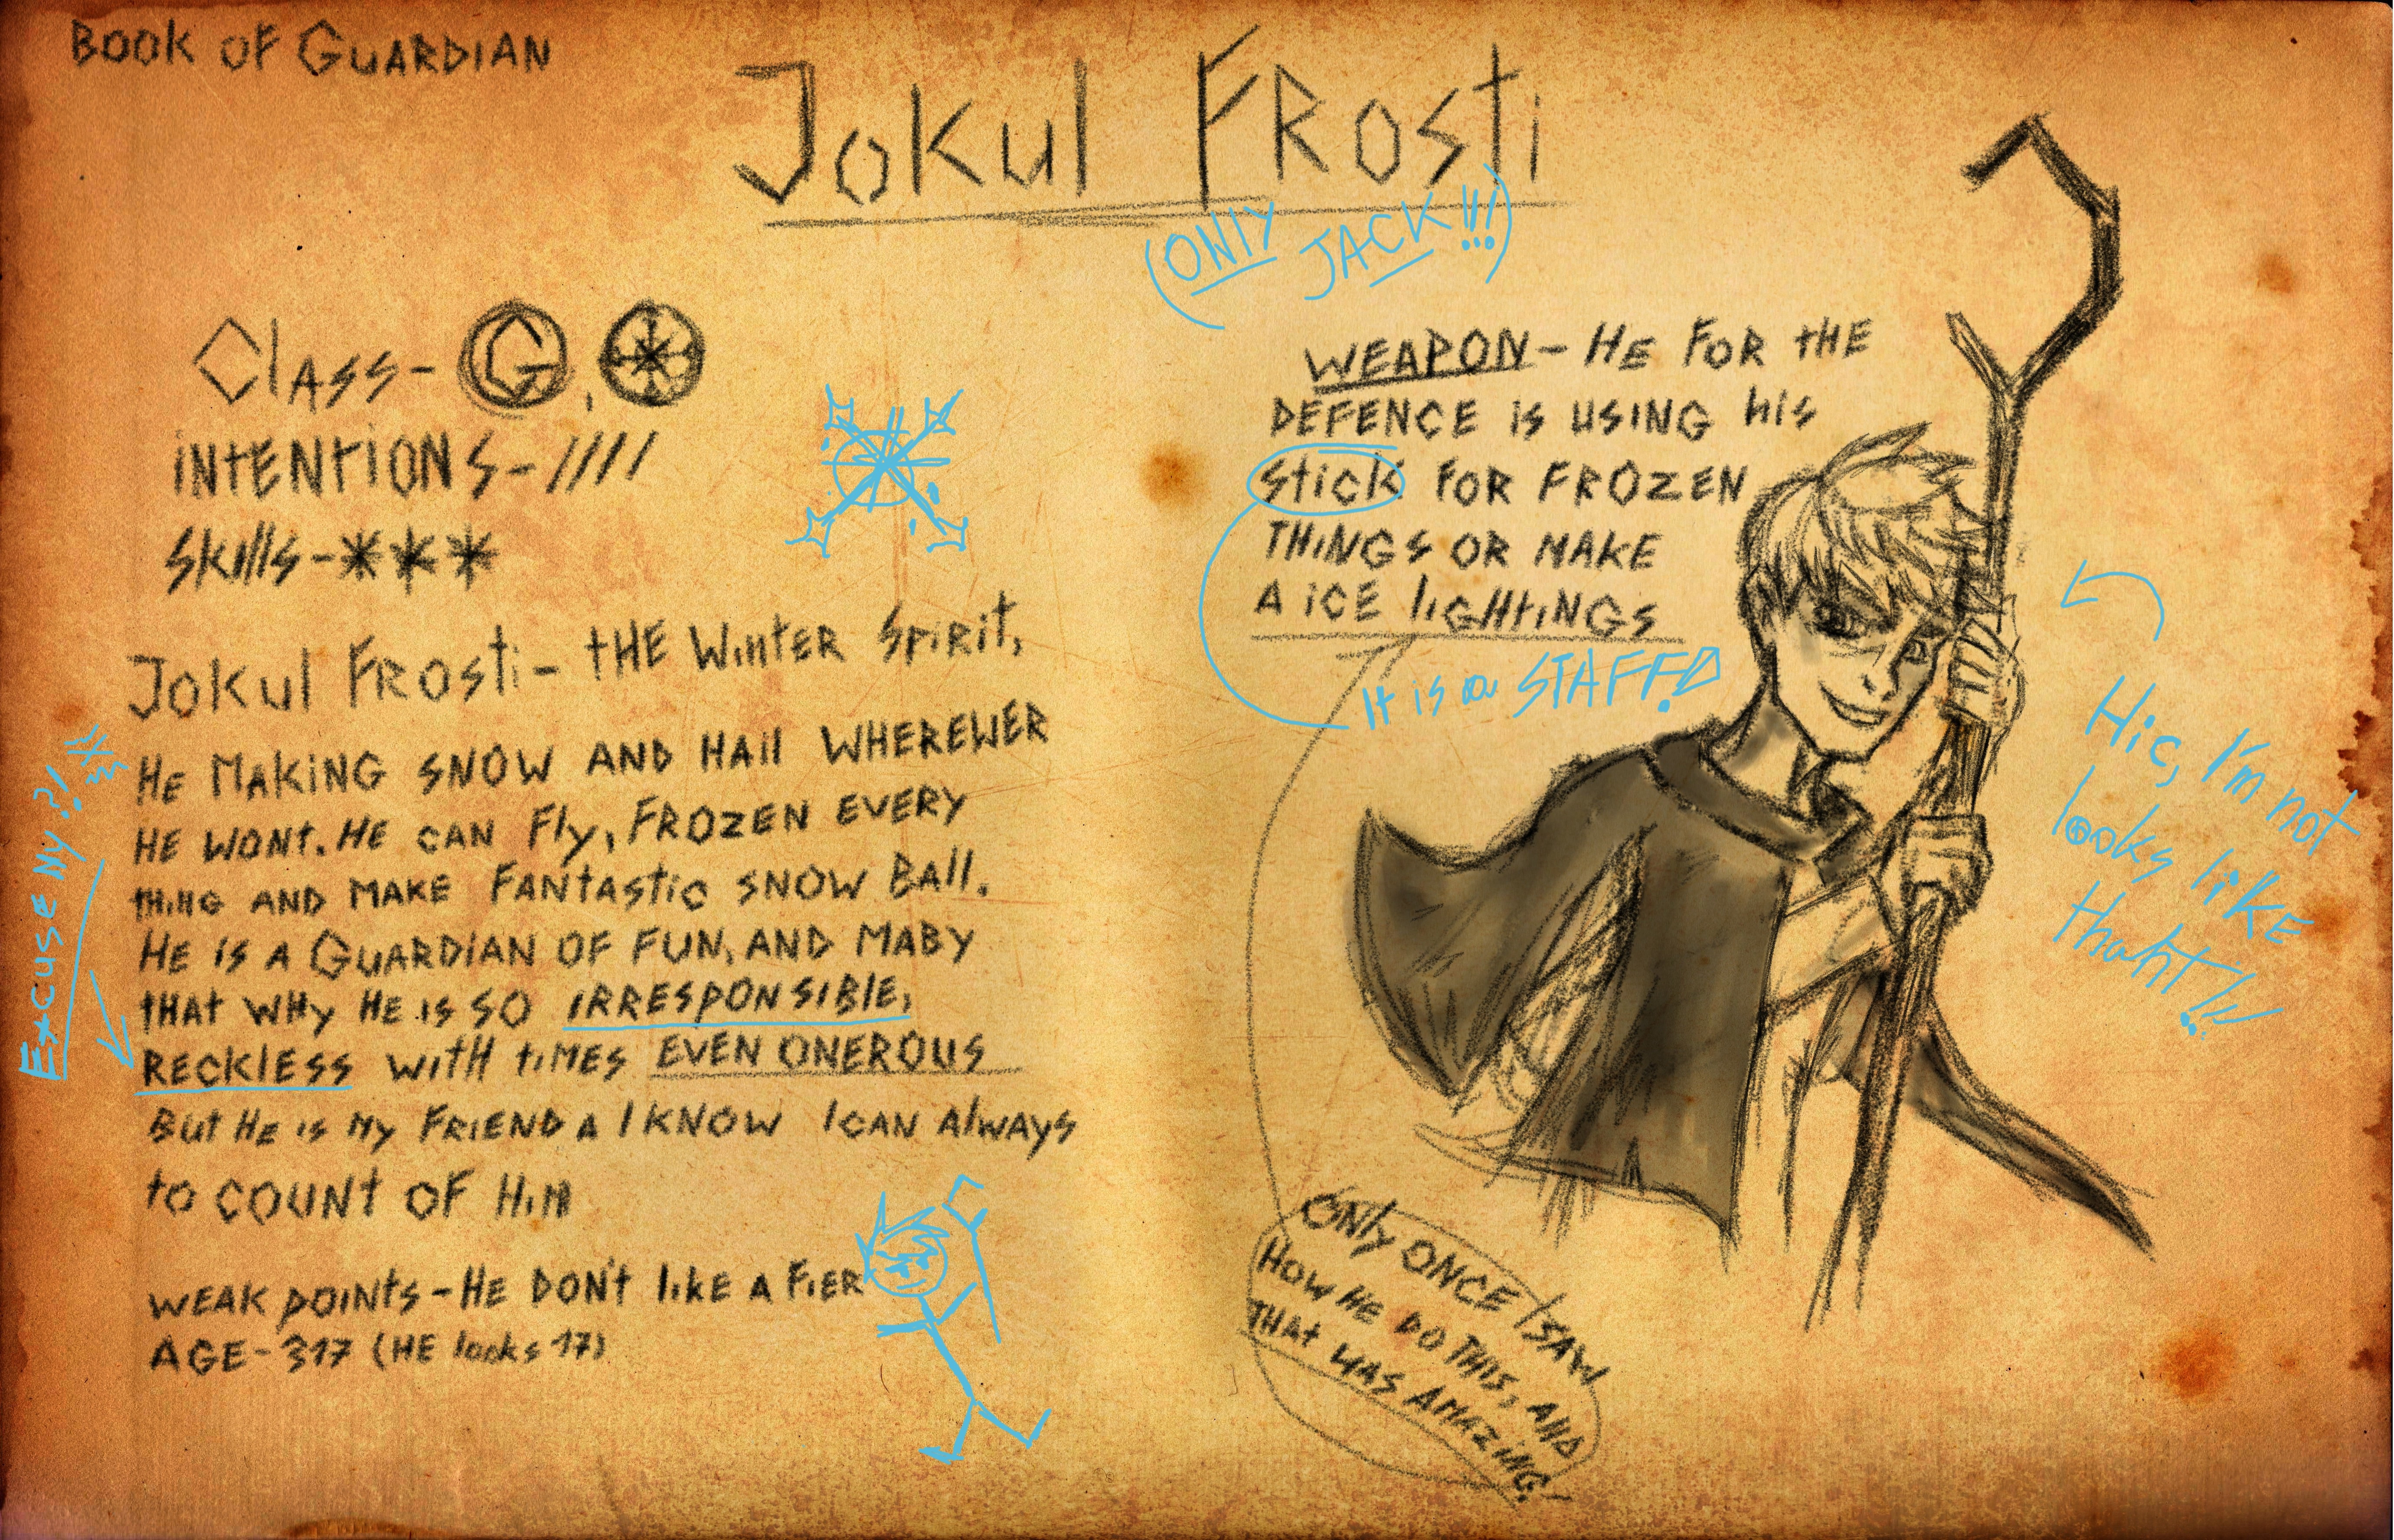 BOOK OF GUARDIAN
JOKUL FROSTI
(ONLY JACK!!!)
CLASS- G,
INTENTIONS-////
SKILLS-***
JOKUL FROSTI- THE WINTER SPIRIT,
HE MAKING SNOW AND HAIL WHEREWER
HE WONT. HE CAN FLY, FROZEN EVERY
THING AND MAKE FANTASTIC SNOW BALL.
HE IS A GUARDIAN OF FUN, AND MABY
THAT WHY HE IS SO IRRESPONSIBLE,
RECKLESS WITH TIMES EVEN ONEROUS
BUT HE IS MY FRIEND A I KNOW I CAN ALWAYS
TO COUNT OF HIM
EXCUSE MY?!
WEAK POINTS-HE DON'T LIKE A FIER
AGE-317 (HE looks 17)
WEAPON-HE FOR THE
DEFENCE IS USING his
STICK FOR FROZEN
THINGS OR MAKE
A ICE LIGHTINGS
It is a STAFF!
Hic, I'm not
looks like
thaht!!!
ONLY ONCE I SAW
HOW HE DO THIS, AND
THAT WAS AMAZING!